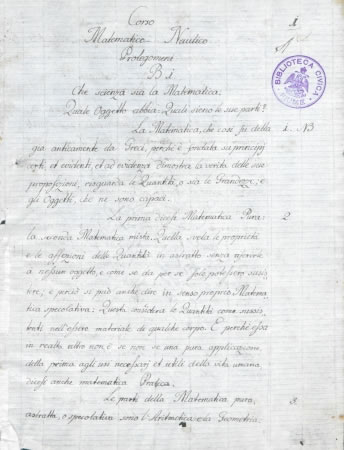 Corso
1
Matematico Nautico
Prolegomeni
Che scienza sia la Matematica;
Quale Oggetto abbia: Quali sieno le sue parti?
BIBLIOTECA CIVICA
FIUME
La Matematica, che così fu detta
1
gia anticamente da Greci, perchè è fondata su principj
certi, et evidenti, et ad evidenza dimostra la verità delle sue
proposizioni, riguarda le Quantità, o sia le Grandezze, e
gli Oggetti, che ne sono capaci.
2
La prima dicesi Matematica Pura:
la seconda Matematica mista. Quella svela le proprietà
e le affezioni delle Quantità in astratto senza riferirle
a nessun oggetto, e come se da per se sole potessero sussis
tere, e perciò se può anche dire in senso proprio Matema
tica speculativa: Questa considera le Quantità come
nell'essere materiale di qualche corpo. E perchè essa
in realtà altro non è se non se una pura applicazione
della prima agli usi necessarj et utili della vita umana
dicesi anche matematica Pratica.
3
Le parti della Matematica pura,
astratta, o speculativa sono l'Aritmetica, e la Geometria.